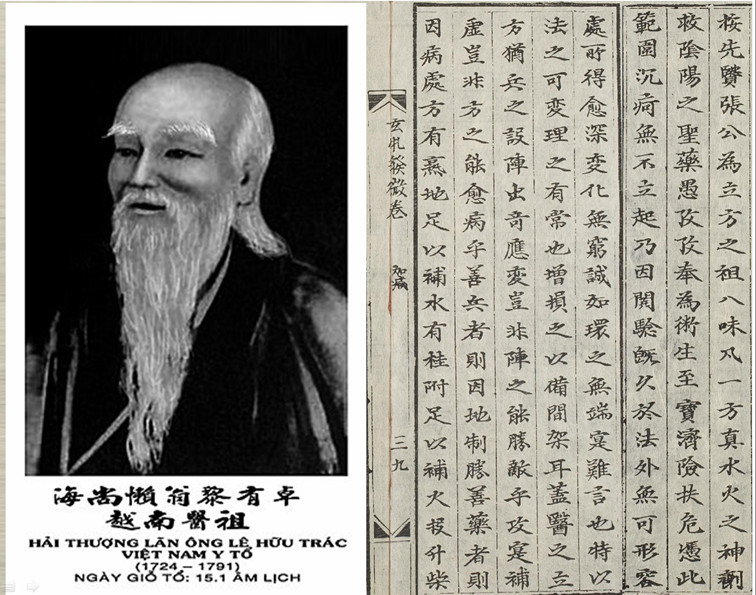 海尚懶翁黎有卓
越南醫祖
HẢI THƯỢNG LÃN ÔNG LÊ HỮU TRÁC
VIỆT NAM Y TỔ
(1724 – 1791)
NGÀY GIỖ TỔ: 15.1 ÂM LỊCH
按先賢張公為立方之祖八味凡一方真水火之神劑
救陰陽之聖藥愚孜孜奉為術生至寶濟險扶危憑此
範圍沉疴無不立起乃因閱驗旣久於法外無可形容
處所得愈深變化無窮誠如環之無端寔難言也特以
法之可變理之有常也增損之以備間架耳蓋醫之立
方猶兵之設陣出奇應變豈非陣之能勝敵乎攻寔補
虛豈非方之能愈病乎善兵者則因地制勝善藥者則
因病處方有熟地足以補水有桂附足以補火投升柴
玄牝發微卷
三九